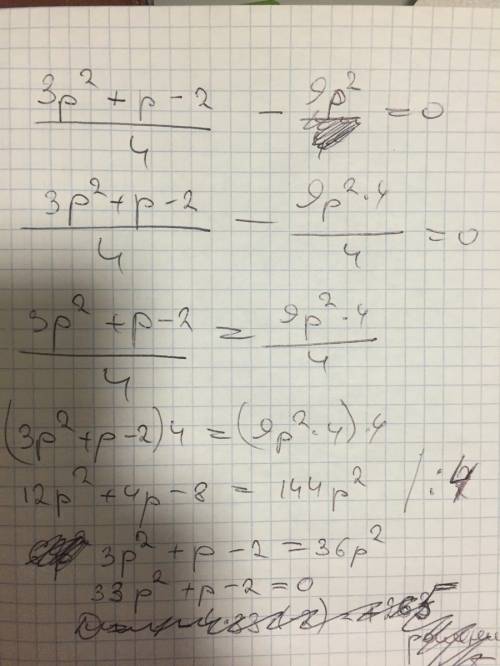 (3p² + p - 2)/4 - 9p² = 0
(3p² + p - 2)/4 - (9p² · 4)/4 = 0
(3p² + p - 2)/4 = (9p² · 4)/4
(3p² + p - 2)4 = (9p² · 4) · 4
12p² + 4p - 8 = 144p² / : 4
3p² + p - 2 = 36p²
33p² + p - 2 = 0